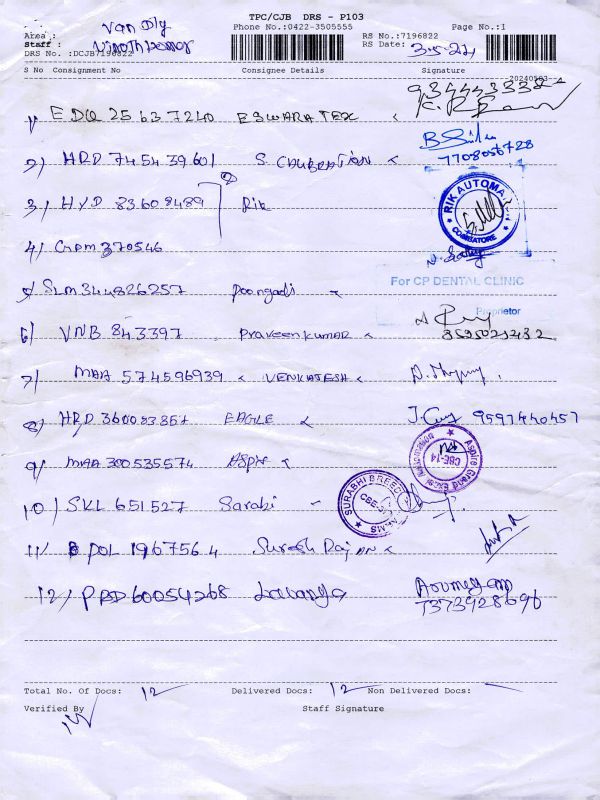 TPC/CJB DRS - P103
Area : Van Dly Phone No.:0422-3505555 RS No.:7196822 Page No.:1
Staff : Vinothkumar RS Date: 3.5.24
DRS No. :DCJB7196822
S No Consignment No Consignee Details Signature
20240503
9344433382
1) EDQ 25637240 ESWARA TEX
7708056728
2) HRD 745439601 S CALIBRATION
RIK AUTOMA
COIMBATORE
3) HYD 83608489 Rik
4) GPM 370546
For CP DENTAL CLINIC
5) SLM 344826257 Poongadi
Proprietor
6) VNB 843397 Praveen kumar
7) MAA 574596939 VENKATESH
8) HRD 360083357 EAGLE 9597440457
9) MAA 300535574 Aspire
Aspire Grand
CBE-14
10) SKL 651527 Sarabi
SURABHI BREED
11) POL 1967564 Suresh Rajan
12) PBD 60054268 Lavanya Arumugam
7373928696
Total No. Of Docs: 12 Delivered Docs: 12 Non Delivered Docs:
Verified By Staff Signature